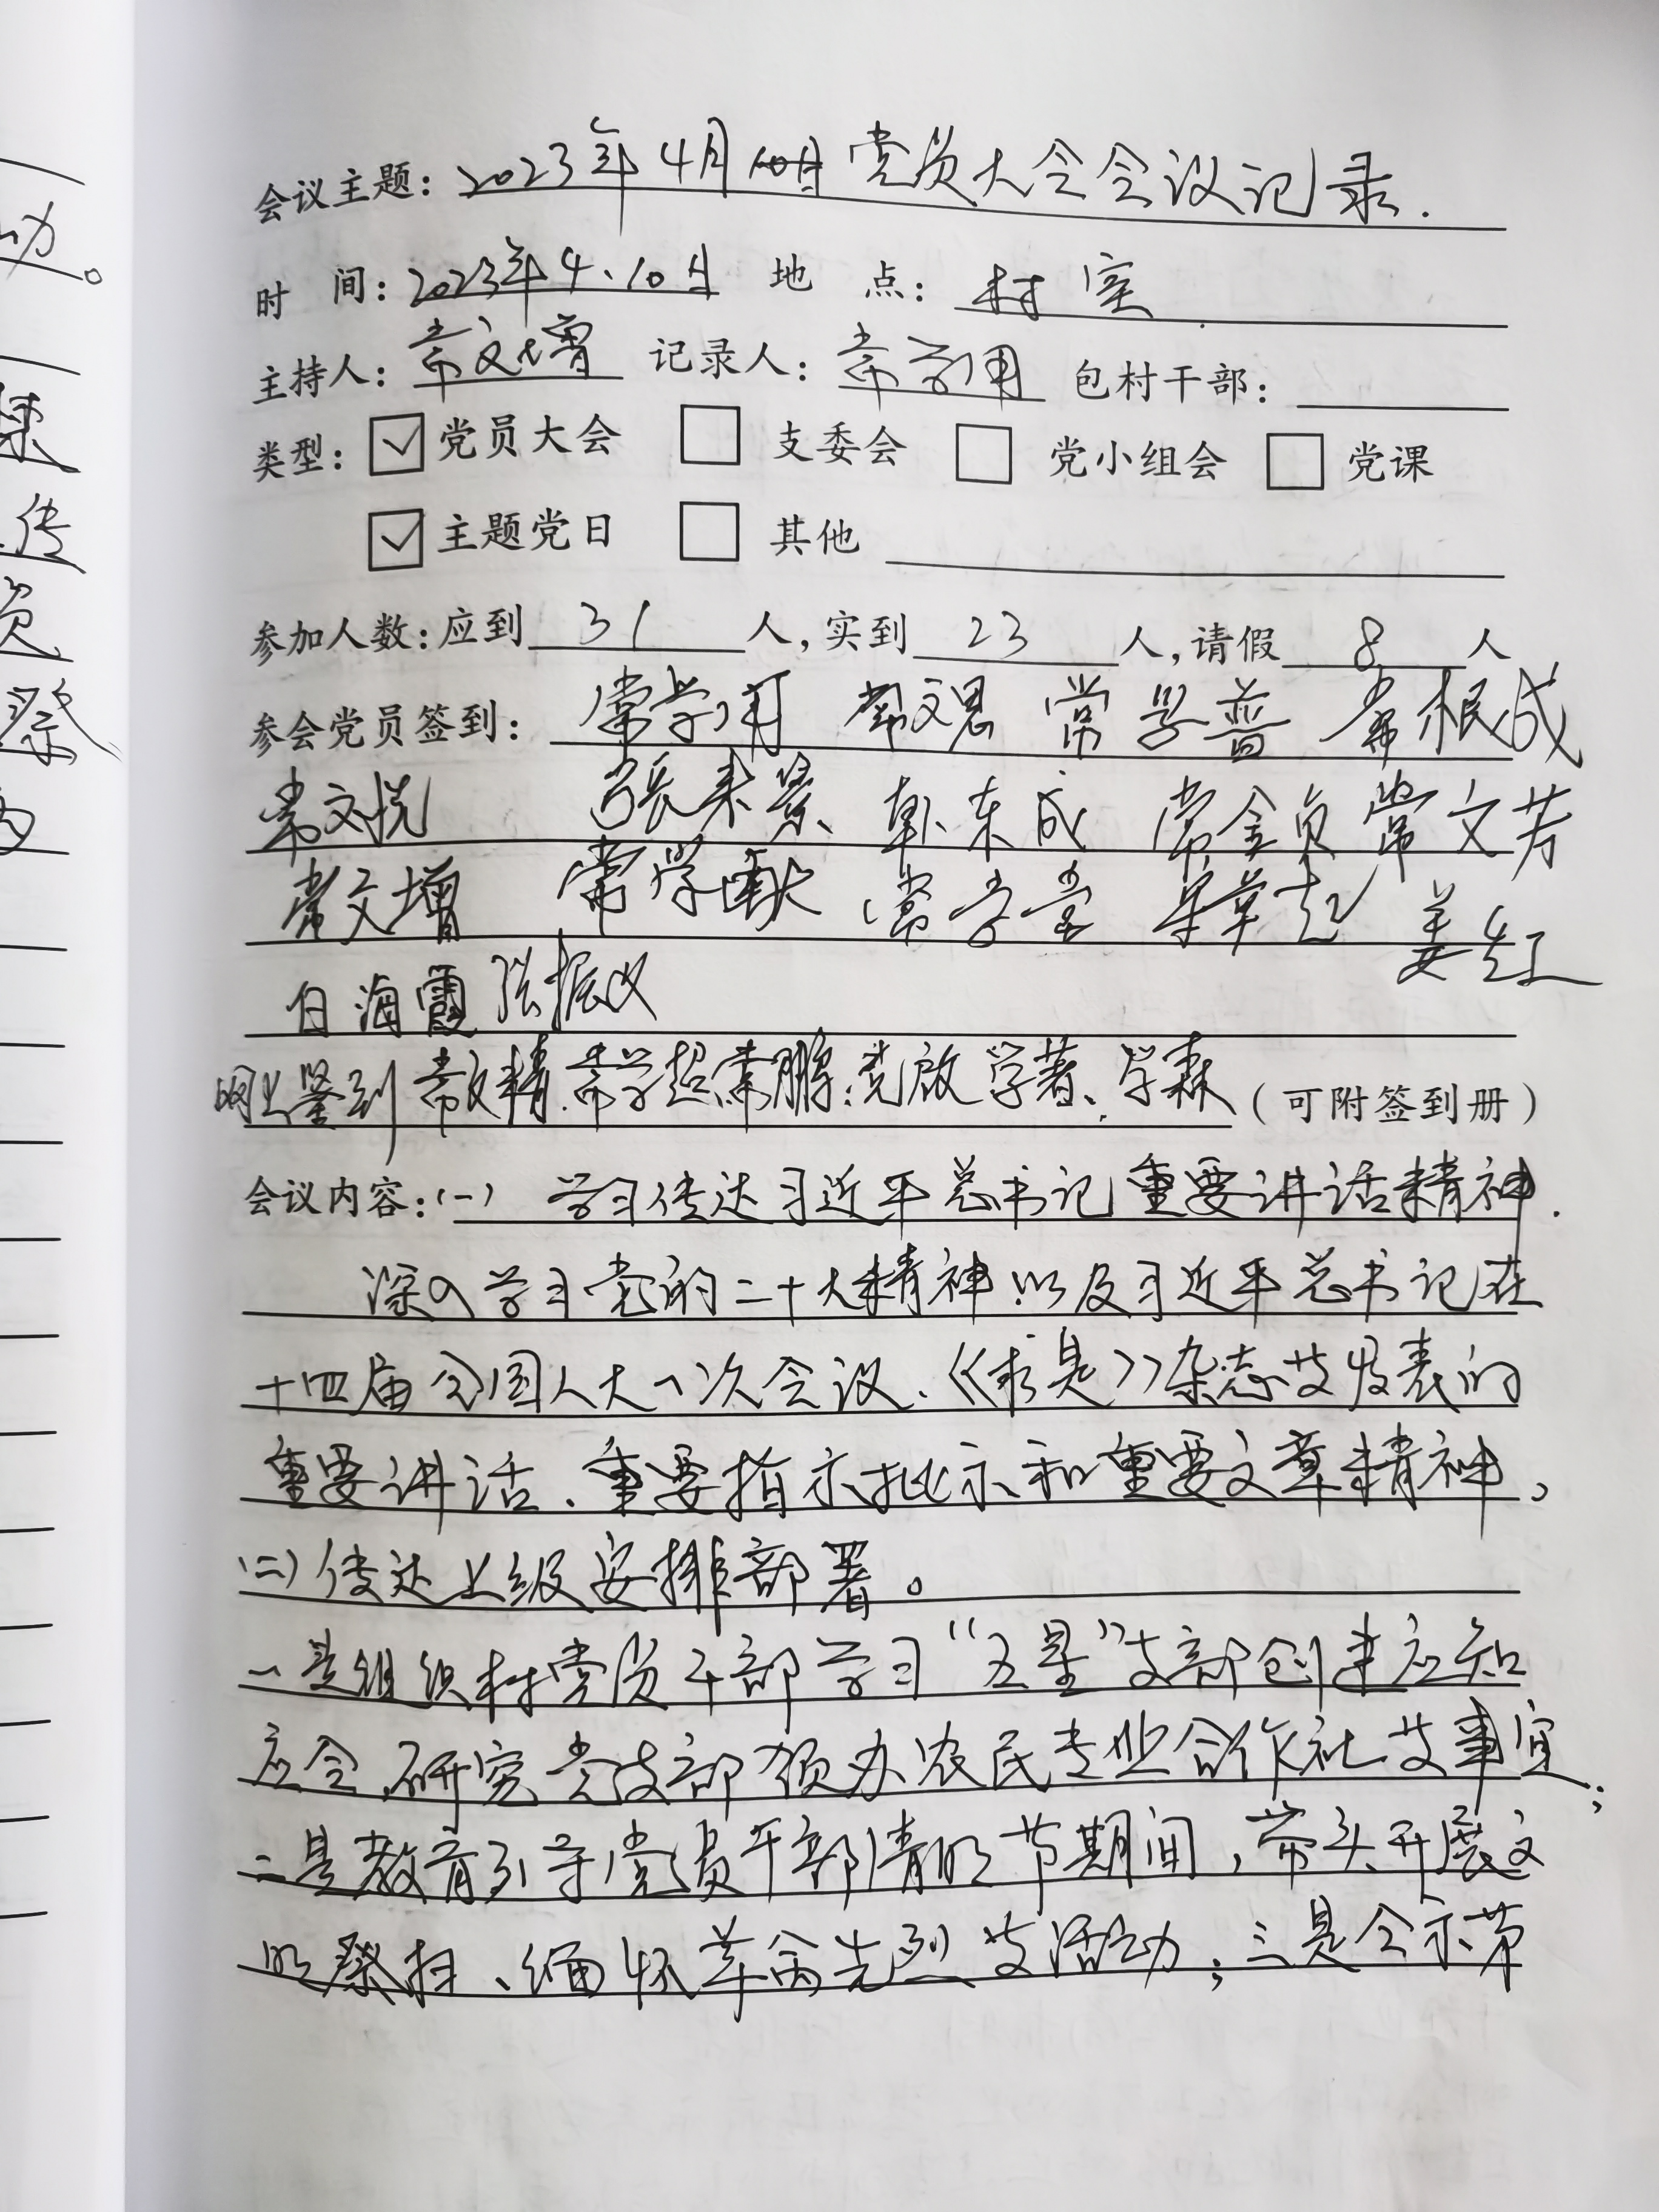 会议主题：2023年4月党员大会会议记录.
时 间：2023年4、10日 地 点：村室
主持人：常文增 记录人：常学用 包村干部：
类型：☑党员大会 □支委会 □党小组会 □党课
☑主题党日 □其他
参加人数：应到 31 人，实到 23 人，请假 8 人
参会党员签到：常学用 常文思 常学普 常根成
常文悦 張来景 郭东成 常金贞 常文芳
常文增 常学献 常学堂 姜红
白海霞 张振汉
网上签到 常文精、常学超 常鹏、党啟 学著、学森（可附签到册）
会议内容：(一) 学习传达习近平总书记重要讲话精神.
深入学习党的二十大精神以及习近平总书记在
十四届全国人大一次会议、《求是》杂志等发表的
重要讲话、重要指示批示和重要文章精神，
(二)传达上级安排部署。
一是组织村党员干部学习“五星”支部创建应知
应会，研究党支部领办农民专业合作社等事宜；
二是教育引导党员干部清明节期间，带头开展文
明祭扫、缅怀革命先烈等活动；三是公示第
办。
传
员
祭